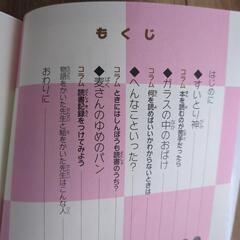 もくじ
はじめに
◆すいとり神
コラム 本を読むのが苦手だったら
◆ガラスの中のおばけ
コラム 何を読めばいいかわからないときは
◆へんなこといった?
コラム ときにはしんぼうも読書のうち?
◆麦さんのゆめのパン
コラム 読書記録をつけてみよう
おわりに
物語をかいた先生と絵をかいた先生はこんな人